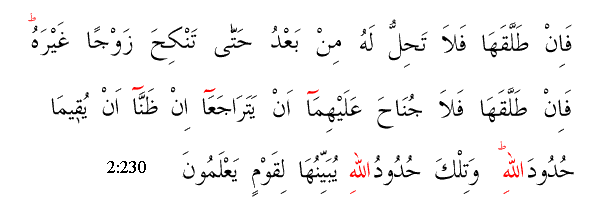 فَاِنْ طَلَّقَهَا فَلَا تَحِلُّ لَهُ مِنْ بَعْدُ حَتّٰى تَنْكِحَ زَوْجًا غَيْرَهُ ؕ
فَاِنْ طَلَّقَهَا فَلَا جُنَاحَ عَلَيْهِمَاۤ اَنْ يَتَرَاجَعَاۤ اِنْ ظَنَّاۤ اَنْ يُقِيمَا
حُدُودَ اللهِ ؕ وَتِلْكَ حُدُودُ اللهِ يُبَيِّنُهَا لِقَوْمٍ يَعْلَمُونَ 2:230